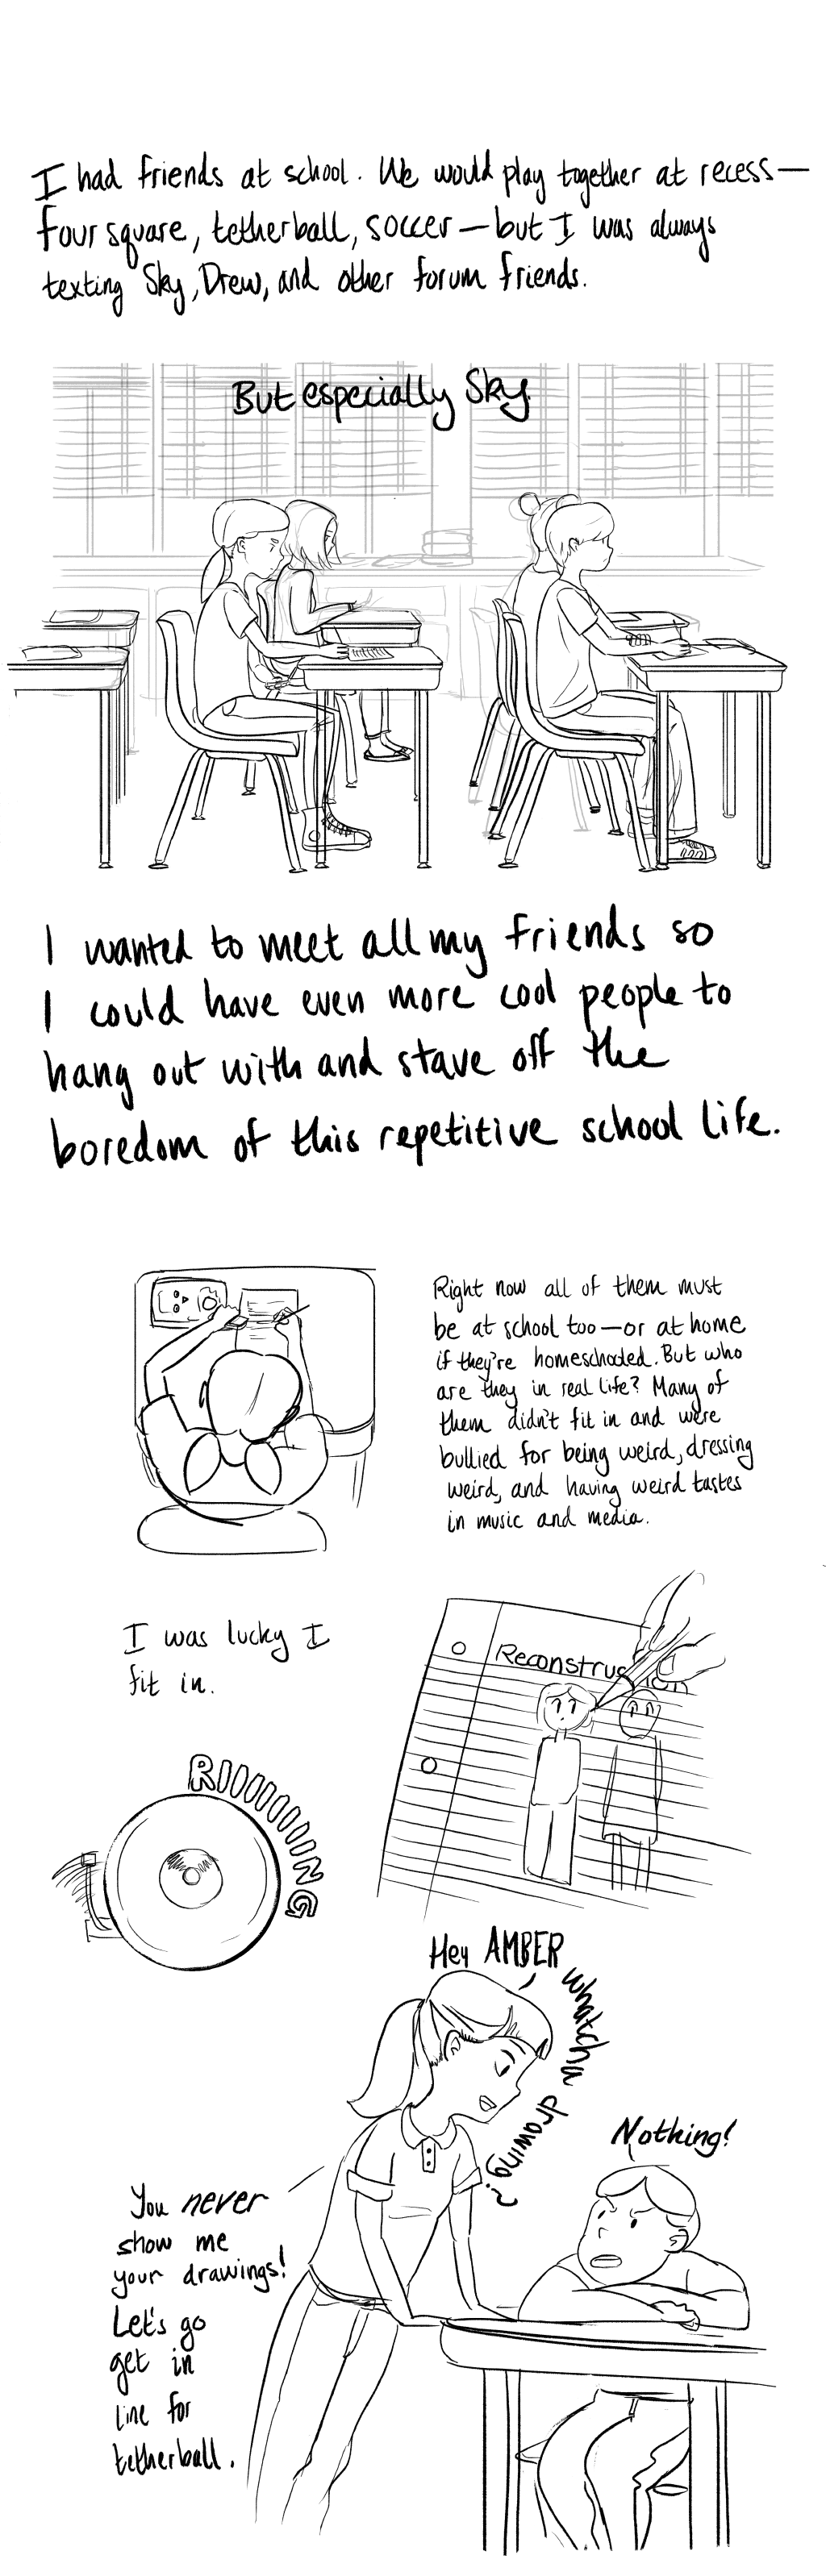 I had friends at school. We would play together at recess—
four square, tetherball, soccer—but I was always
texting Sky, Drew, and other forum friends.
But especially Sky.
I wanted to meet all my friends so
I could have even more cool people to
hang out with and stave off the
boredom of this repetitive school life.
Right now all of them must
be at school too—or at home
if they're homeschooled. But who
are they in real life? Many of
them didn't fit in and were
bullied for being weird, dressing
weird, and having weird tastes
in music and media.
I was lucky I
fit in.
Reconstruction
RIIIIIIIIING
Hey AMBER
whatcha drawing?
Nothing!
You never
show me
your drawings!
Let's go
get in
line for
tetherball.